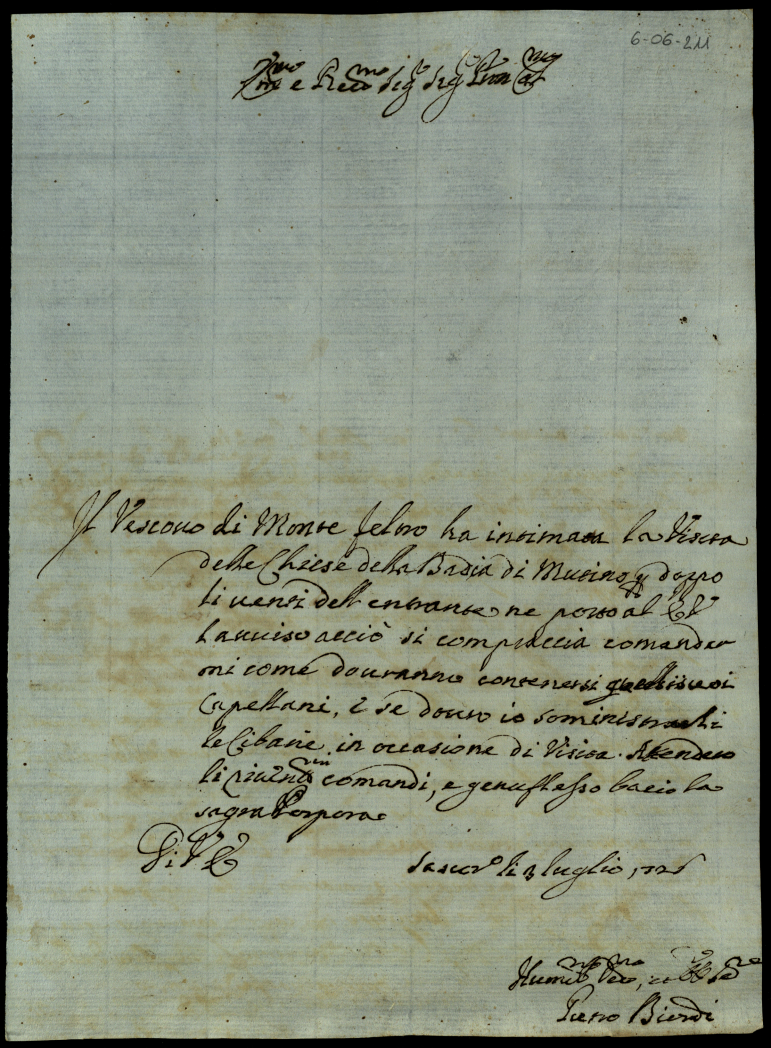 6-06-211
Em.mo e Re.mo Sig.r Sig.r Pron Col.mo
Il Vescovo di Monte feltro ha intimata la Visita
delle Chiese della Badia di Mutino, p doppo
li venti dell entrante ne porto al E V
l avviso acciò si compiaccia comandar
mi come douranno contenersi quelli suoi
Capellani, e se douro io sominis
le Cibarie in occasione di Visita. Atendero
li comandi, e genuflesso bacio la
sagra Porpora
Di V E
li 3 luglio 1725
Humil.mo Deu.mo
Pietro Biondi